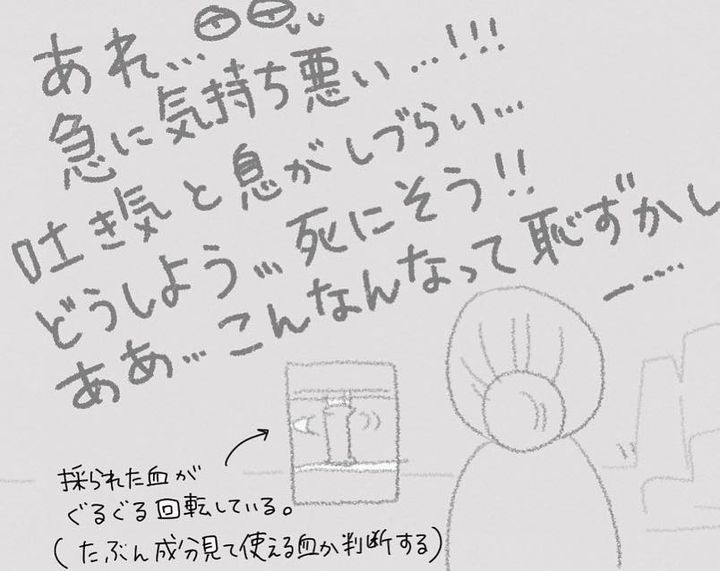 あれ…
急に気持ち悪い…!!!
吐き気と息がしづらい…
どうしよう…死にそう!!
ああ…こんなんなって恥ずかし
ー……
採られた血が
ぐるぐる回転している。
(たぶん成分見て使える血か判断する)